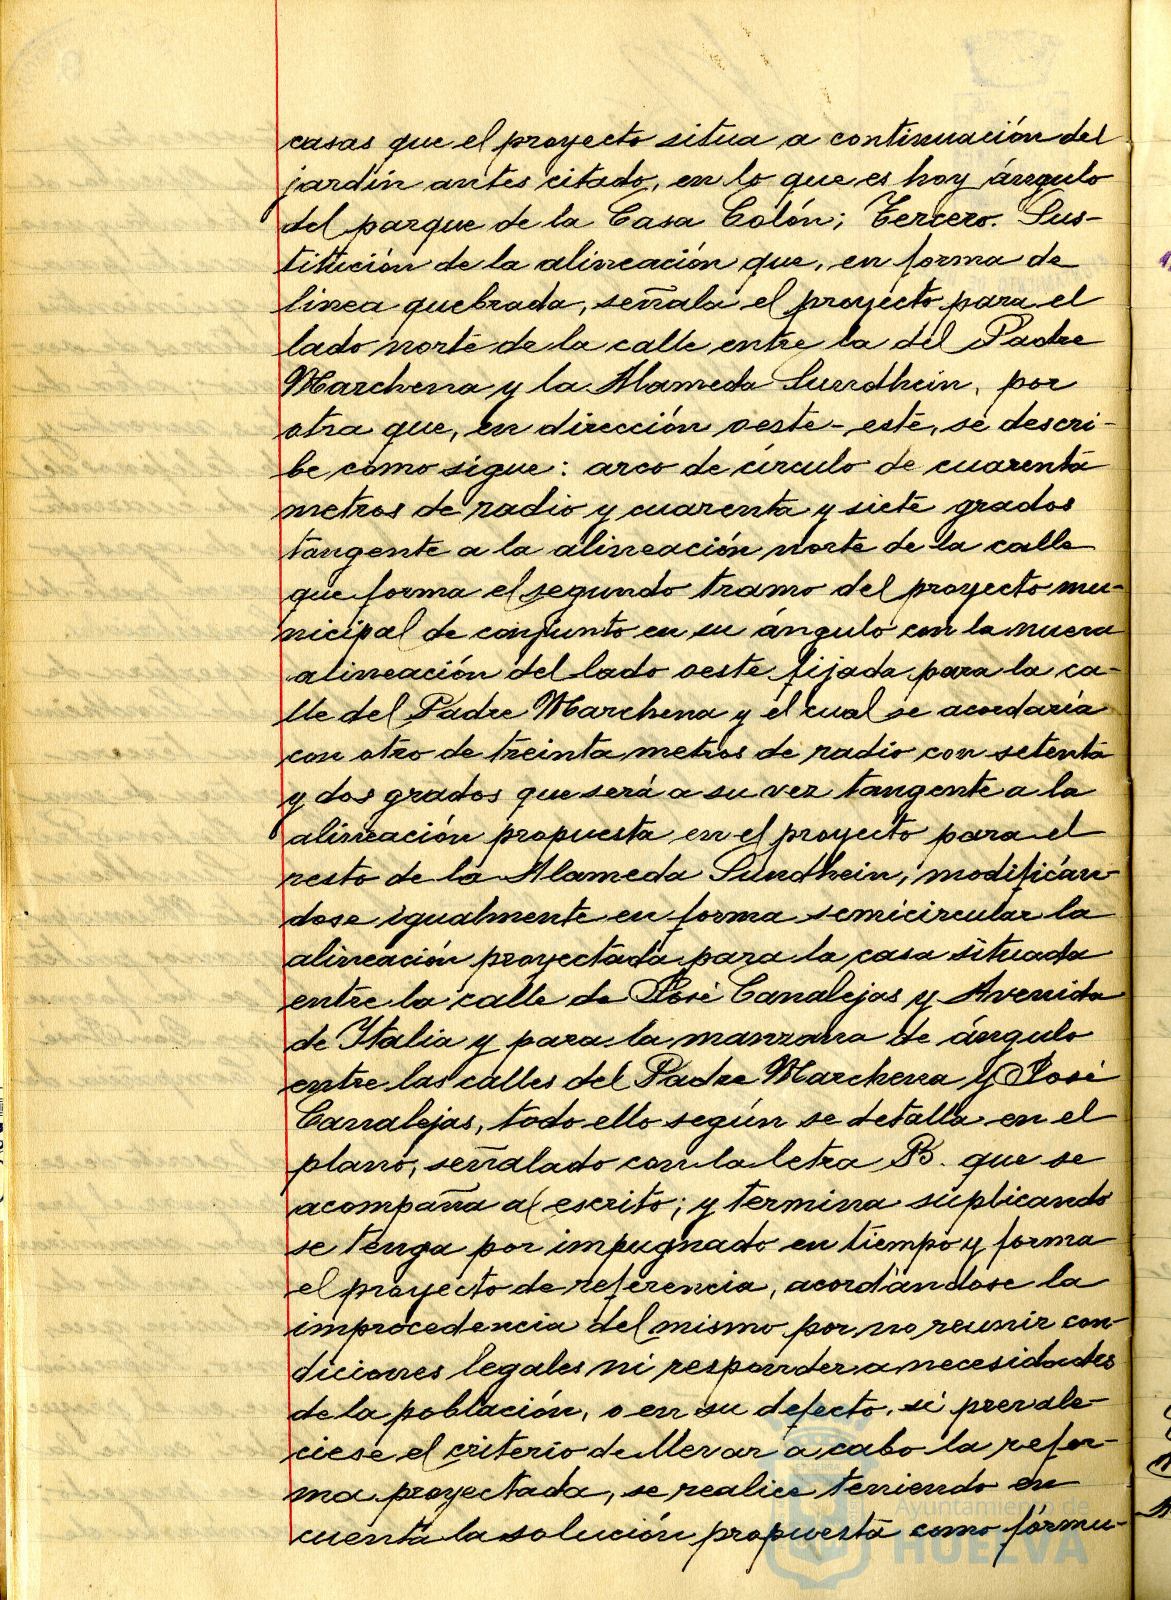 casas que el proyecto situa a continuación del
jardín antes citado, en lo que es hoy ángulo
del parque de la Casa Colón; Tercero. Sus-
titución de la alineación que, en forma de
linea quebrada, señala el proyecto para el
lado norte de la calle entre la del Padre
Marchena y la Alameda Sundhein, por
otra que, en dirección oeste-este, se descri-
be como sigue: arco de círculo de cuarenta
metros de radio y cuarenta y siete grados
tangente a la alineación norte de la calle
que forma el segundo tramo del proyecto mu-
nicipal de conjunto en su ángulo con la nueva
alineación del lado oeste fijada para la ca-
lle del Padre Marchena y el cual se acordaría
con otro de treinta metros de radio con setenta
y dos grados que será a su vez tangente a la
alineación propuesta en el proyecto para el
resto de la Alameda Sundhein; modificán-
dose igualmente en forma semicircular la
alineación proyectada para la casa situada
entre la calle de José Canalejas y Avenida
de Italia y para la manzana de ángulo
entre las calles del Padre Marchena y José
Canalejas, todo ello según se detalla en el
plano, señalado con la letra B. que se
acompaña al escrito; y termina suplicando
se tenga por impugnado en tiempo y forma
el proyecto de referencia, acordándose la
improcedencia del mismo por no reunir con-
diciones legales ni responder a necesidades
de la población, o en su defecto, si prevale-
ciese el criterio de llevar a cabo la refor-
ma proyectada, se realice teniendo en
cuenta la solución propuesta como fórmu-
Ayuntamiento de
HUELVA